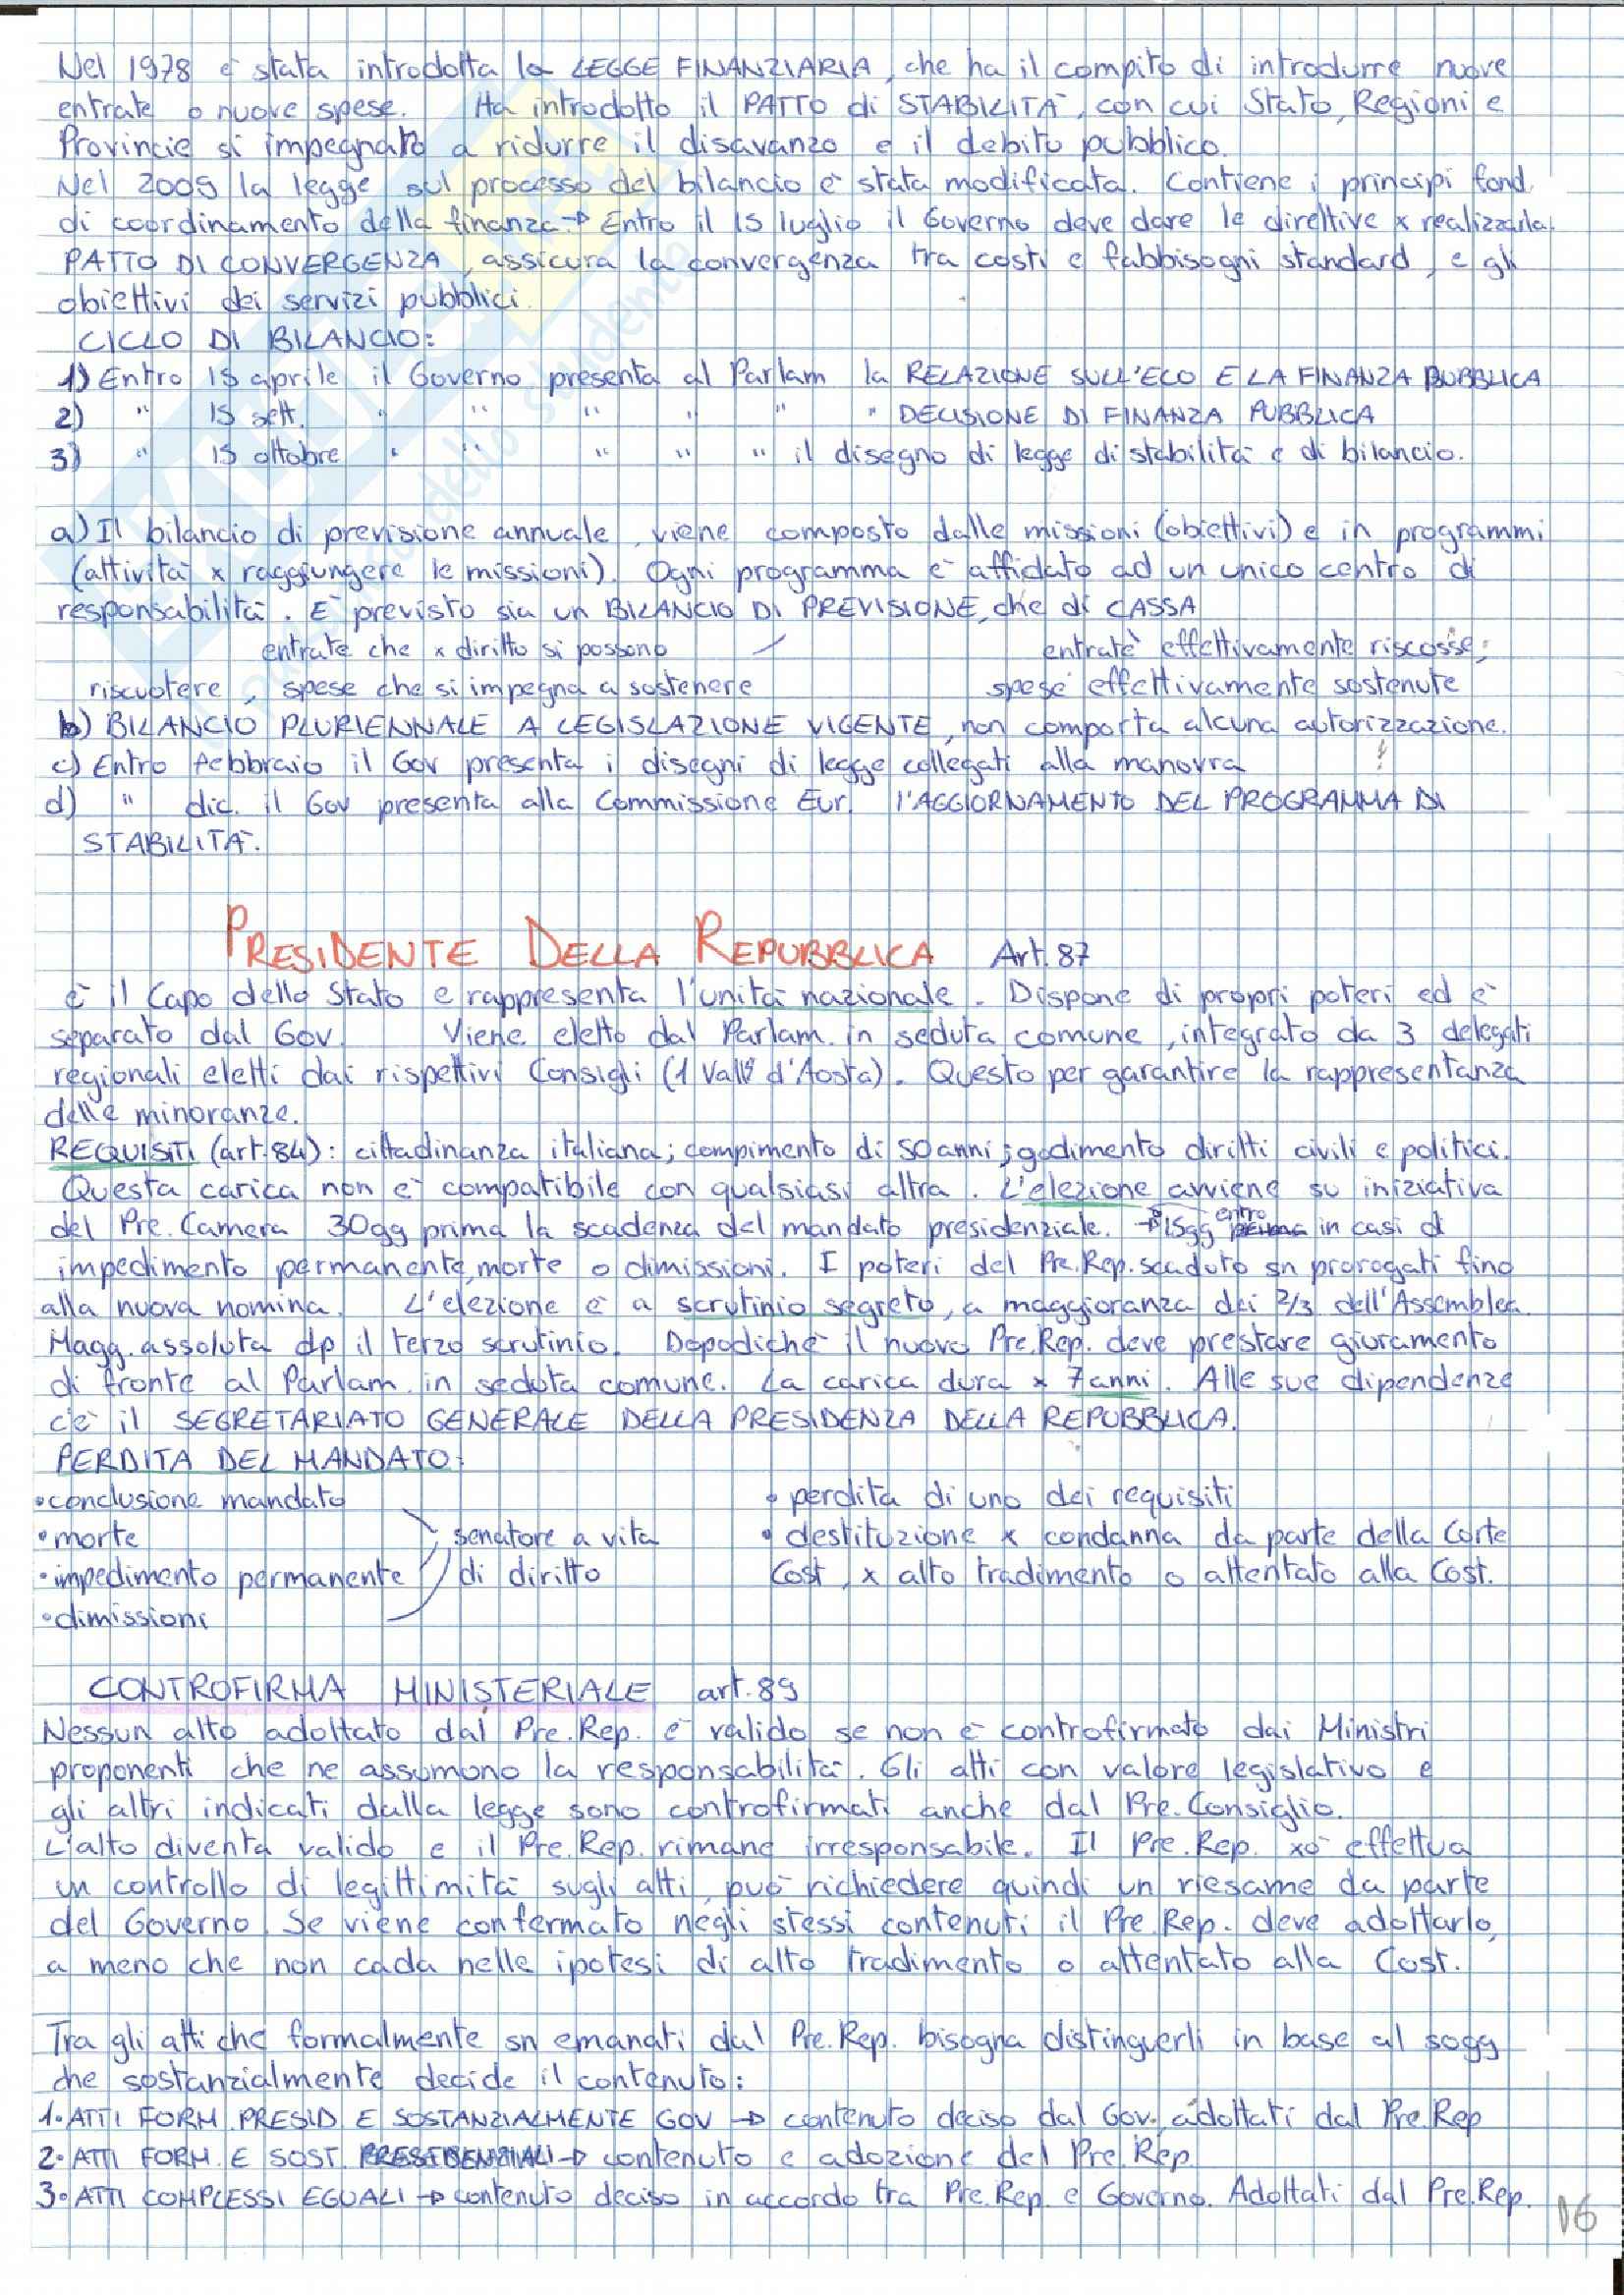 Nel 1978 è stata introdotta la LEGGE FINANZIARIA, che ha il compito di introdurre nuove
entrate o nuove spese. Ha introdotto il PATTO di STABILITÀ, con cui Stato, Regioni e
Provincie si impegnato a ridurre il disavanzo e il debito pubblico.
Nel 2009 la legge sul processo del bilancio è stata modificata. Contiene i principi fond.
di coordinamento della finanza → Entro il 15 luglio il Governo deve dare le direttive x realizzarla.
PATTO DI CONVERGENZA, assicura la convergenza tra costi e fabbisogni standard, e gli
obiettivi dei servizi pubblici.
CICLO DI BILANCIO:
1) Entro 15 aprile il Governo presenta al Parlam la RELAZIONE SULL'ECO E LA FINANZA PUBBLICA
2) " 15 sett. " " " " " " DECISIONE DI FINANZA PUBBLICA
3) " 15 ottobre " " " " " il disegno di legge di stabilità e di bilancio.
a) Il bilancio di previsione annuale, viene composto dalle missioni (obiettivi) e in programmi
(attività x raggiungere le missioni). Ogni programma è affidato ad un unico centro di
responsabilità. È previsto sia un BILANCIO DI PREVISIONE, che di CASSA
entrate che x diritto si possono entrate effettivamente riscosse;
riscuotere, spese che si impegna a sostenere spese effettivamente sostenute
b) BILANCIO PLURIENNALE A LEGISLAZIONE VIGENTE, non comporta alcuna autorizzazione.
c) Entro febbraio il Gov presenta i disegni di legge collegati alla manovra
d) " dic. il Gov presenta alla Commissione Eur. l'AGGIORNAMENTO DEL PROGRAMMA DI
STABILITÀ.
PRESIDENTE DELLA REPUBBLICA Art. 87
è il Capo dello Stato e rappresenta l'unità nazionale. Dispone di propri poteri ed è
separato dal Gov. Viene eletto dal Parlam. in seduta comune, integrato da 3 delegati
regionali eletti dai rispettivi Consigli (1 Valle d'Aosta). Questo per garantire la rappresentanza
delle minoranze.
REQUISITI (art. 84): cittadinanza italiana; compimento di 50 anni; godimento diritti civili e politici.
Questa carica non è compatibile con qualsiasi altra. L'elezione avviene su iniziativa
del Pre. Camera 30gg prima la scadenza del mandato presidenziale. → 15gg entro in casi di
impedimento permanente, morte o dimissioni. I poteri del Pre.Rep. scaduto sn prorogati fino
alla nuova nomina. L'elezione è a scrutinio segreto, a maggioranza dei 2/3 dell'Assemblea.
Magg. assoluta dp il terzo scrutinio. Dopodichè il nuovo Pre.Rep. deve prestare giuramento
di fronte al Parlam. in seduta comune. La carica dura x 7 anni. Alle sue dipendenze
c'è il SEGRETARIATO GENERALE DELLA PRESIDENZA DELLA REPUBBLICA.
PERDITA DEL MANDATO:
• conclusione mandato • perdita di uno dei requisiti
• morte senatore a vita • destituzione x condanna da parte della Corte
• impedimento permanente di diritto Cost, x alto tradimento o attentato alla Cost.
• dimissioni
CONTROFIRMA MINISTERIALE art. 89
Nessun atto adottato dal Pre.Rep. è valido se non è controfirmato dai Ministri
proponenti che ne assumono la responsabilità. Gli atti con valore legislativo e
gli altri indicati dalla legge sono controfirmati anche dal Pre. Consiglio.
L'atto diventa valido e il Pre.Rep. rimane irresponsabile. Il Pre.Rep. xò effettua
un controllo di legittimità sugli atti, può richiedere quindi un riesame da parte
del Governo. Se viene confermato negli stessi contenuti il Pre.Rep. deve adottarlo,
a meno che non cada nelle ipotesi di alto tradimento o attentato alla Cost.
Tra gli atti che formalmente sn emanati dal Pre.Rep. bisogna distinguerli in base al sogg
che sostanzialmente decide il contenuto:
1. ATTI FORM. PRESID E SOSTANZIALMENTE GOV → contenuto deciso dal Gov. adottati dal Pre.Rep
2. ATTI FORM. E SOST. PRESIDENZIALI → contenuto e adozione del Pre.Rep.
3. ATTI COMPLESSI EGUALI → contenuto deciso in accordo tra Pre.Rep. e Governo. Adottati dal Pre.Rep.
16